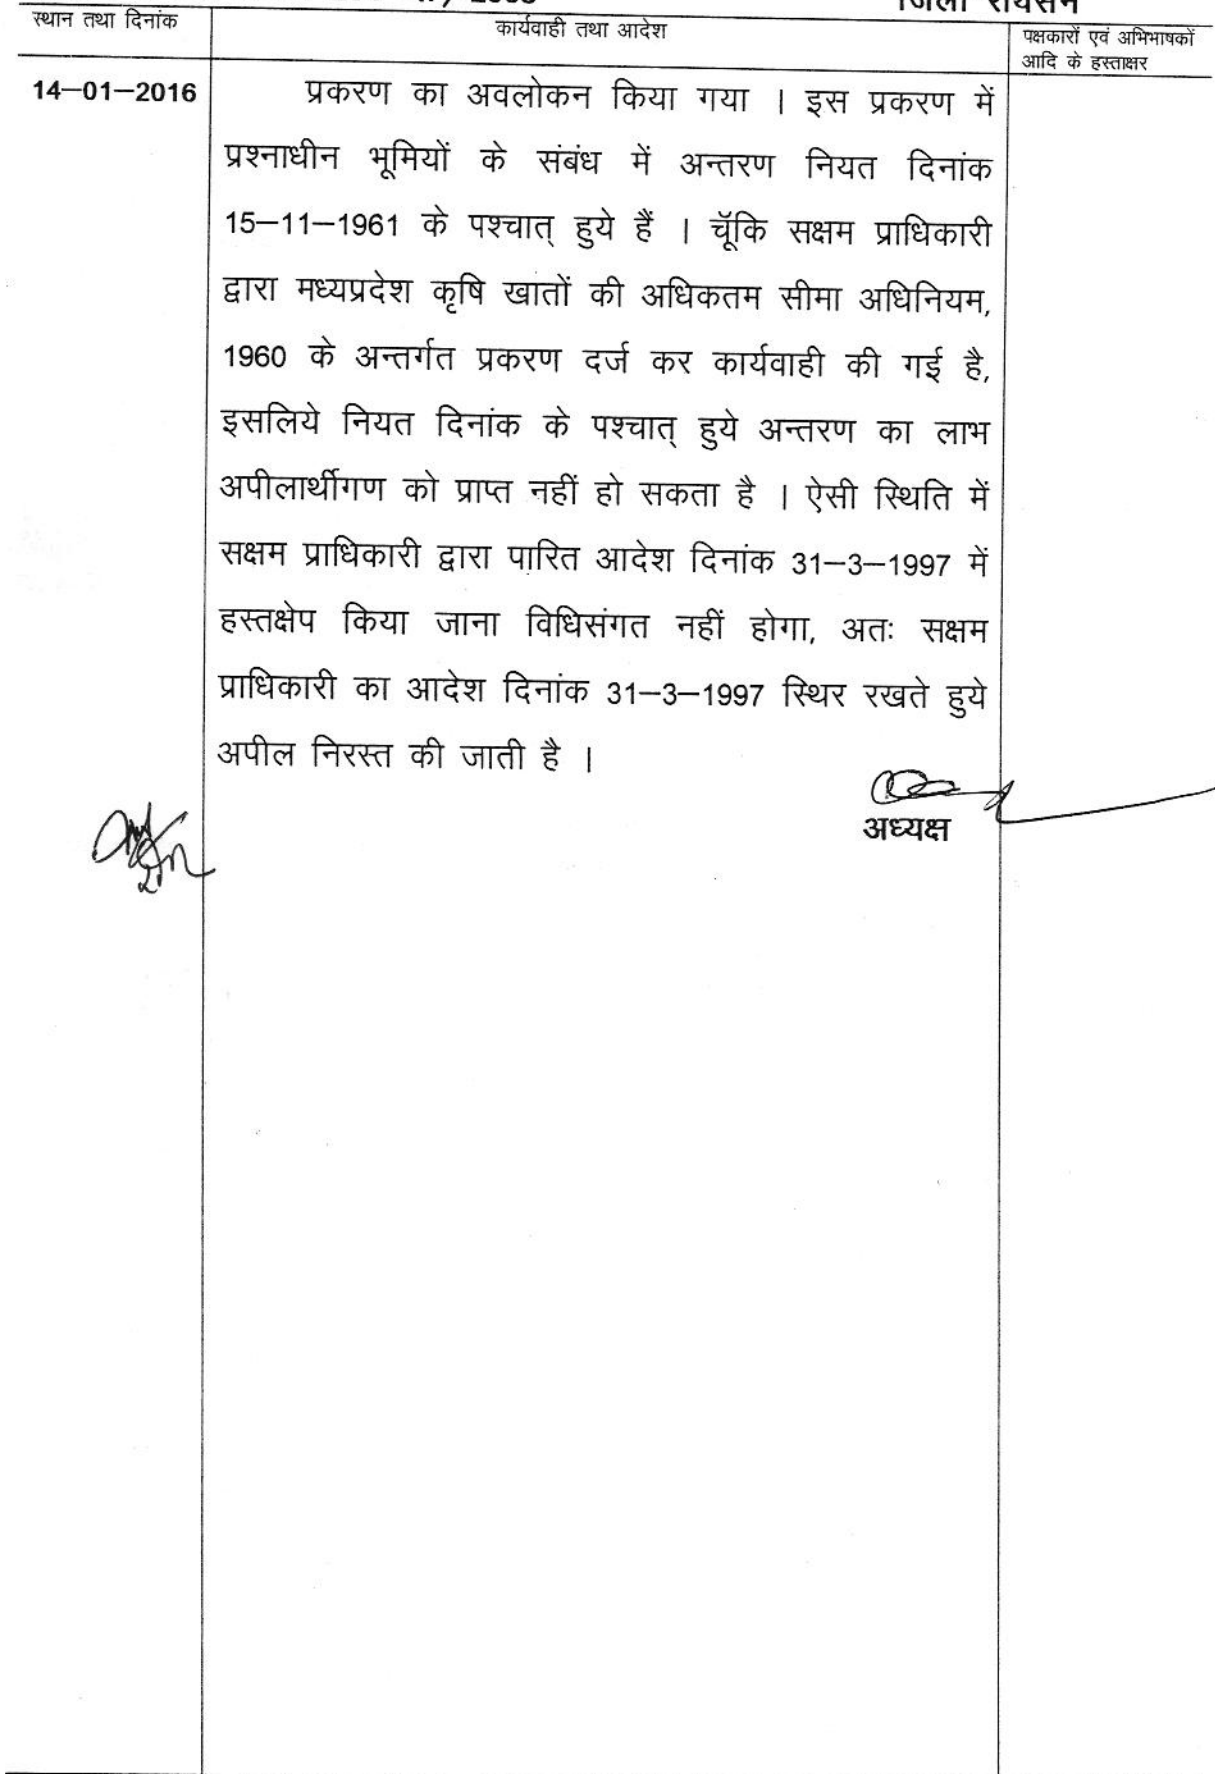 जिला रायसेन
स्थान तथा दिनांक
कार्यवाही तथा आदेश
पक्षकारों एवं अभिभाषकों
आदि के हस्ताक्षर
14–01–2016
प्रकरण का अवलोकन किया गया । इस प्रकरण में
प्रश्नाधीन भूमियों के संबंध में अन्तरण नियत दिनांक
15–11–1961 के पश्चात् हुये हैं । चॅूकि सक्षम प्राधिकारी
द्वारा मध्यप्रदेश कृषि खातों की अधिकतम सीमा अधिनियम,
1960 के अन्तर्गत प्रकरण दर्ज कर कार्यवाही की गई है,
इसलिये नियत दिनांक के पश्चात् हुये अन्तरण का लाभ
अपीलार्थीगण को प्राप्त नहीं हो सकता है । ऐसी स्थिति में
सक्षम प्राधिकारी द्वारा पारित आदेश दिनांक 31–3–1997 में
हस्तक्षेप किया जाना विधिसंगत नहीं होगा, अतः सक्षम
प्राधिकारी का आदेश दिनांक 31–3–1997 स्थिर रखते हुये
अपील निरस्त की जाती है ।
अध्यक्ष